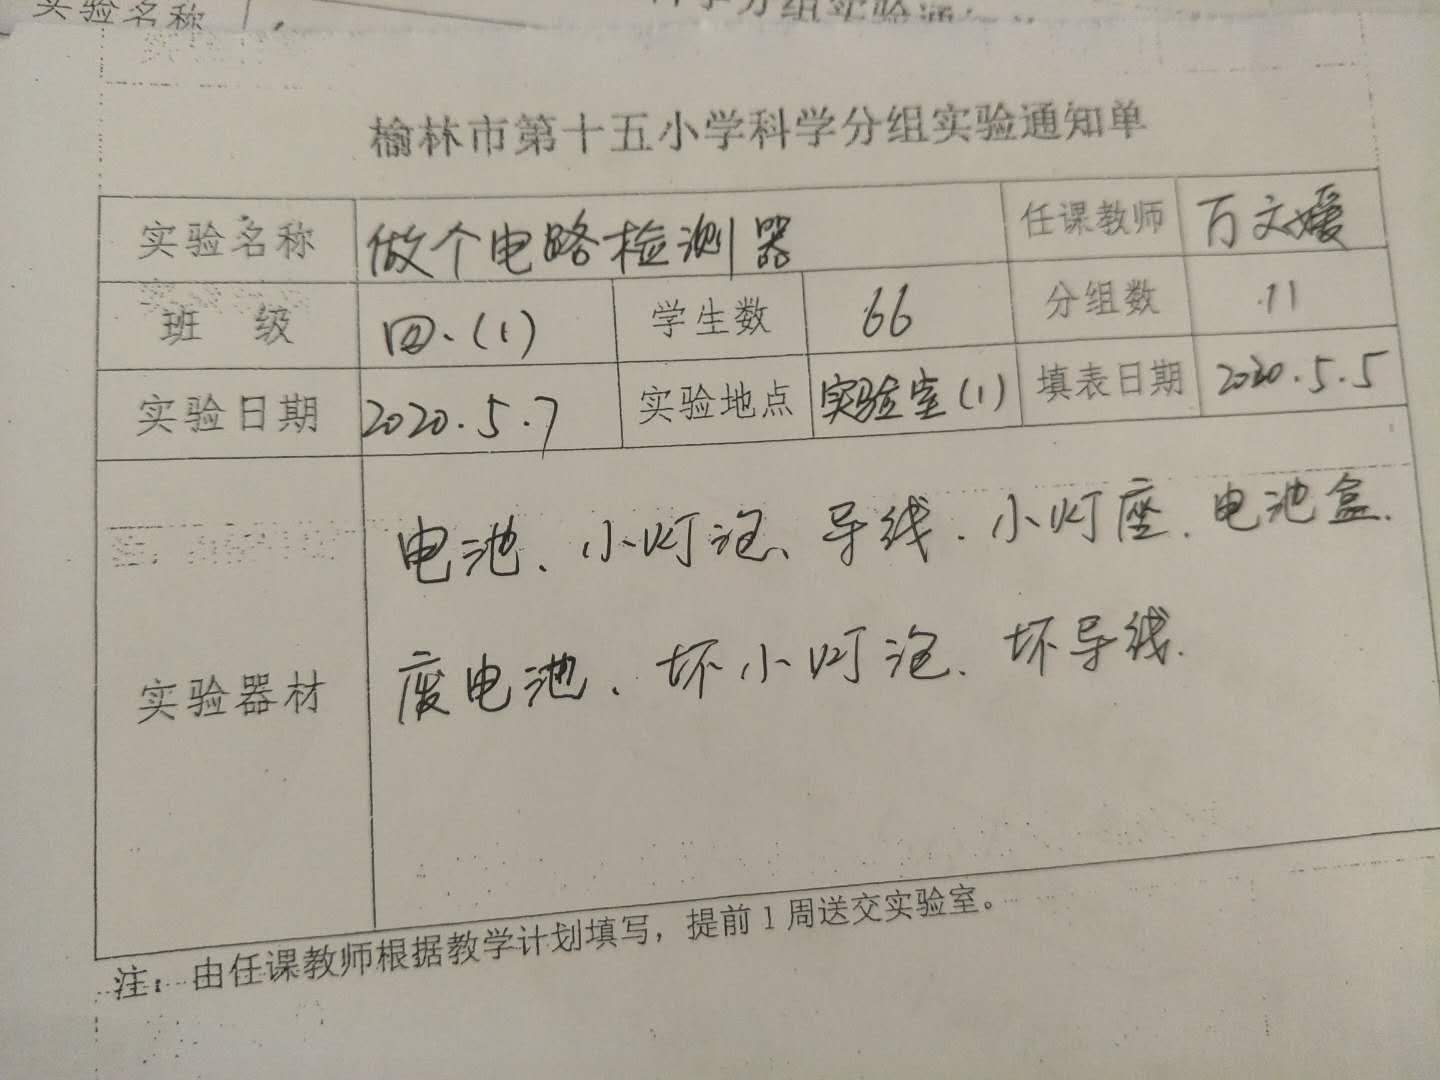 实验名称
榆林市第十五小学科学分组实验通知单
实验名称 做个电路检测器 任课教师 万文媛
班 级 四、(1) 学生数 66 分组数 11
实验日期 2020.5.7 实验地点 实验室(1) 填表日期 2020.5.5
实验器材
电池、小灯泡、导线、小灯座、电池盒、
废电池、坏小灯泡、坏导线.
注：由任课教师根据教学计划填写，提前1周送交实验室。